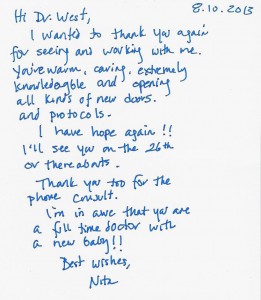 8.10.2013
Hi Dr. West,
I wanted to thank you again
for seeing and working with me.
You're warm, caring, extremely
knowledgable and opening
all kinds of new doors.
and protocols.
I have hope again!!
I'll see you on the 26th
or thereabouts.
Thank you too for the
phone consult.
I'm in awe that you are
a full time doctor with
a new baby!!
Best wishes,
Nita